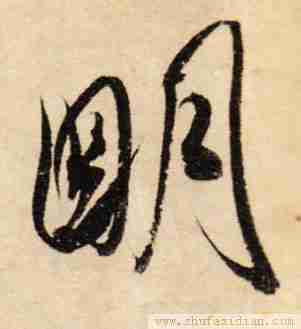 明
www.shufazidian.com